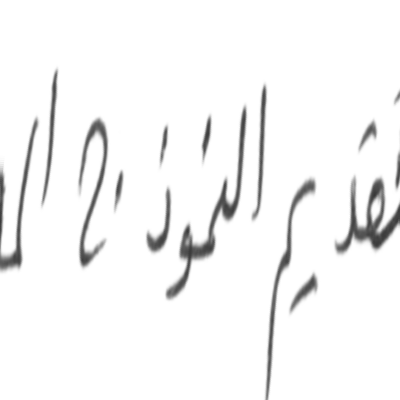 تقديم النموذج